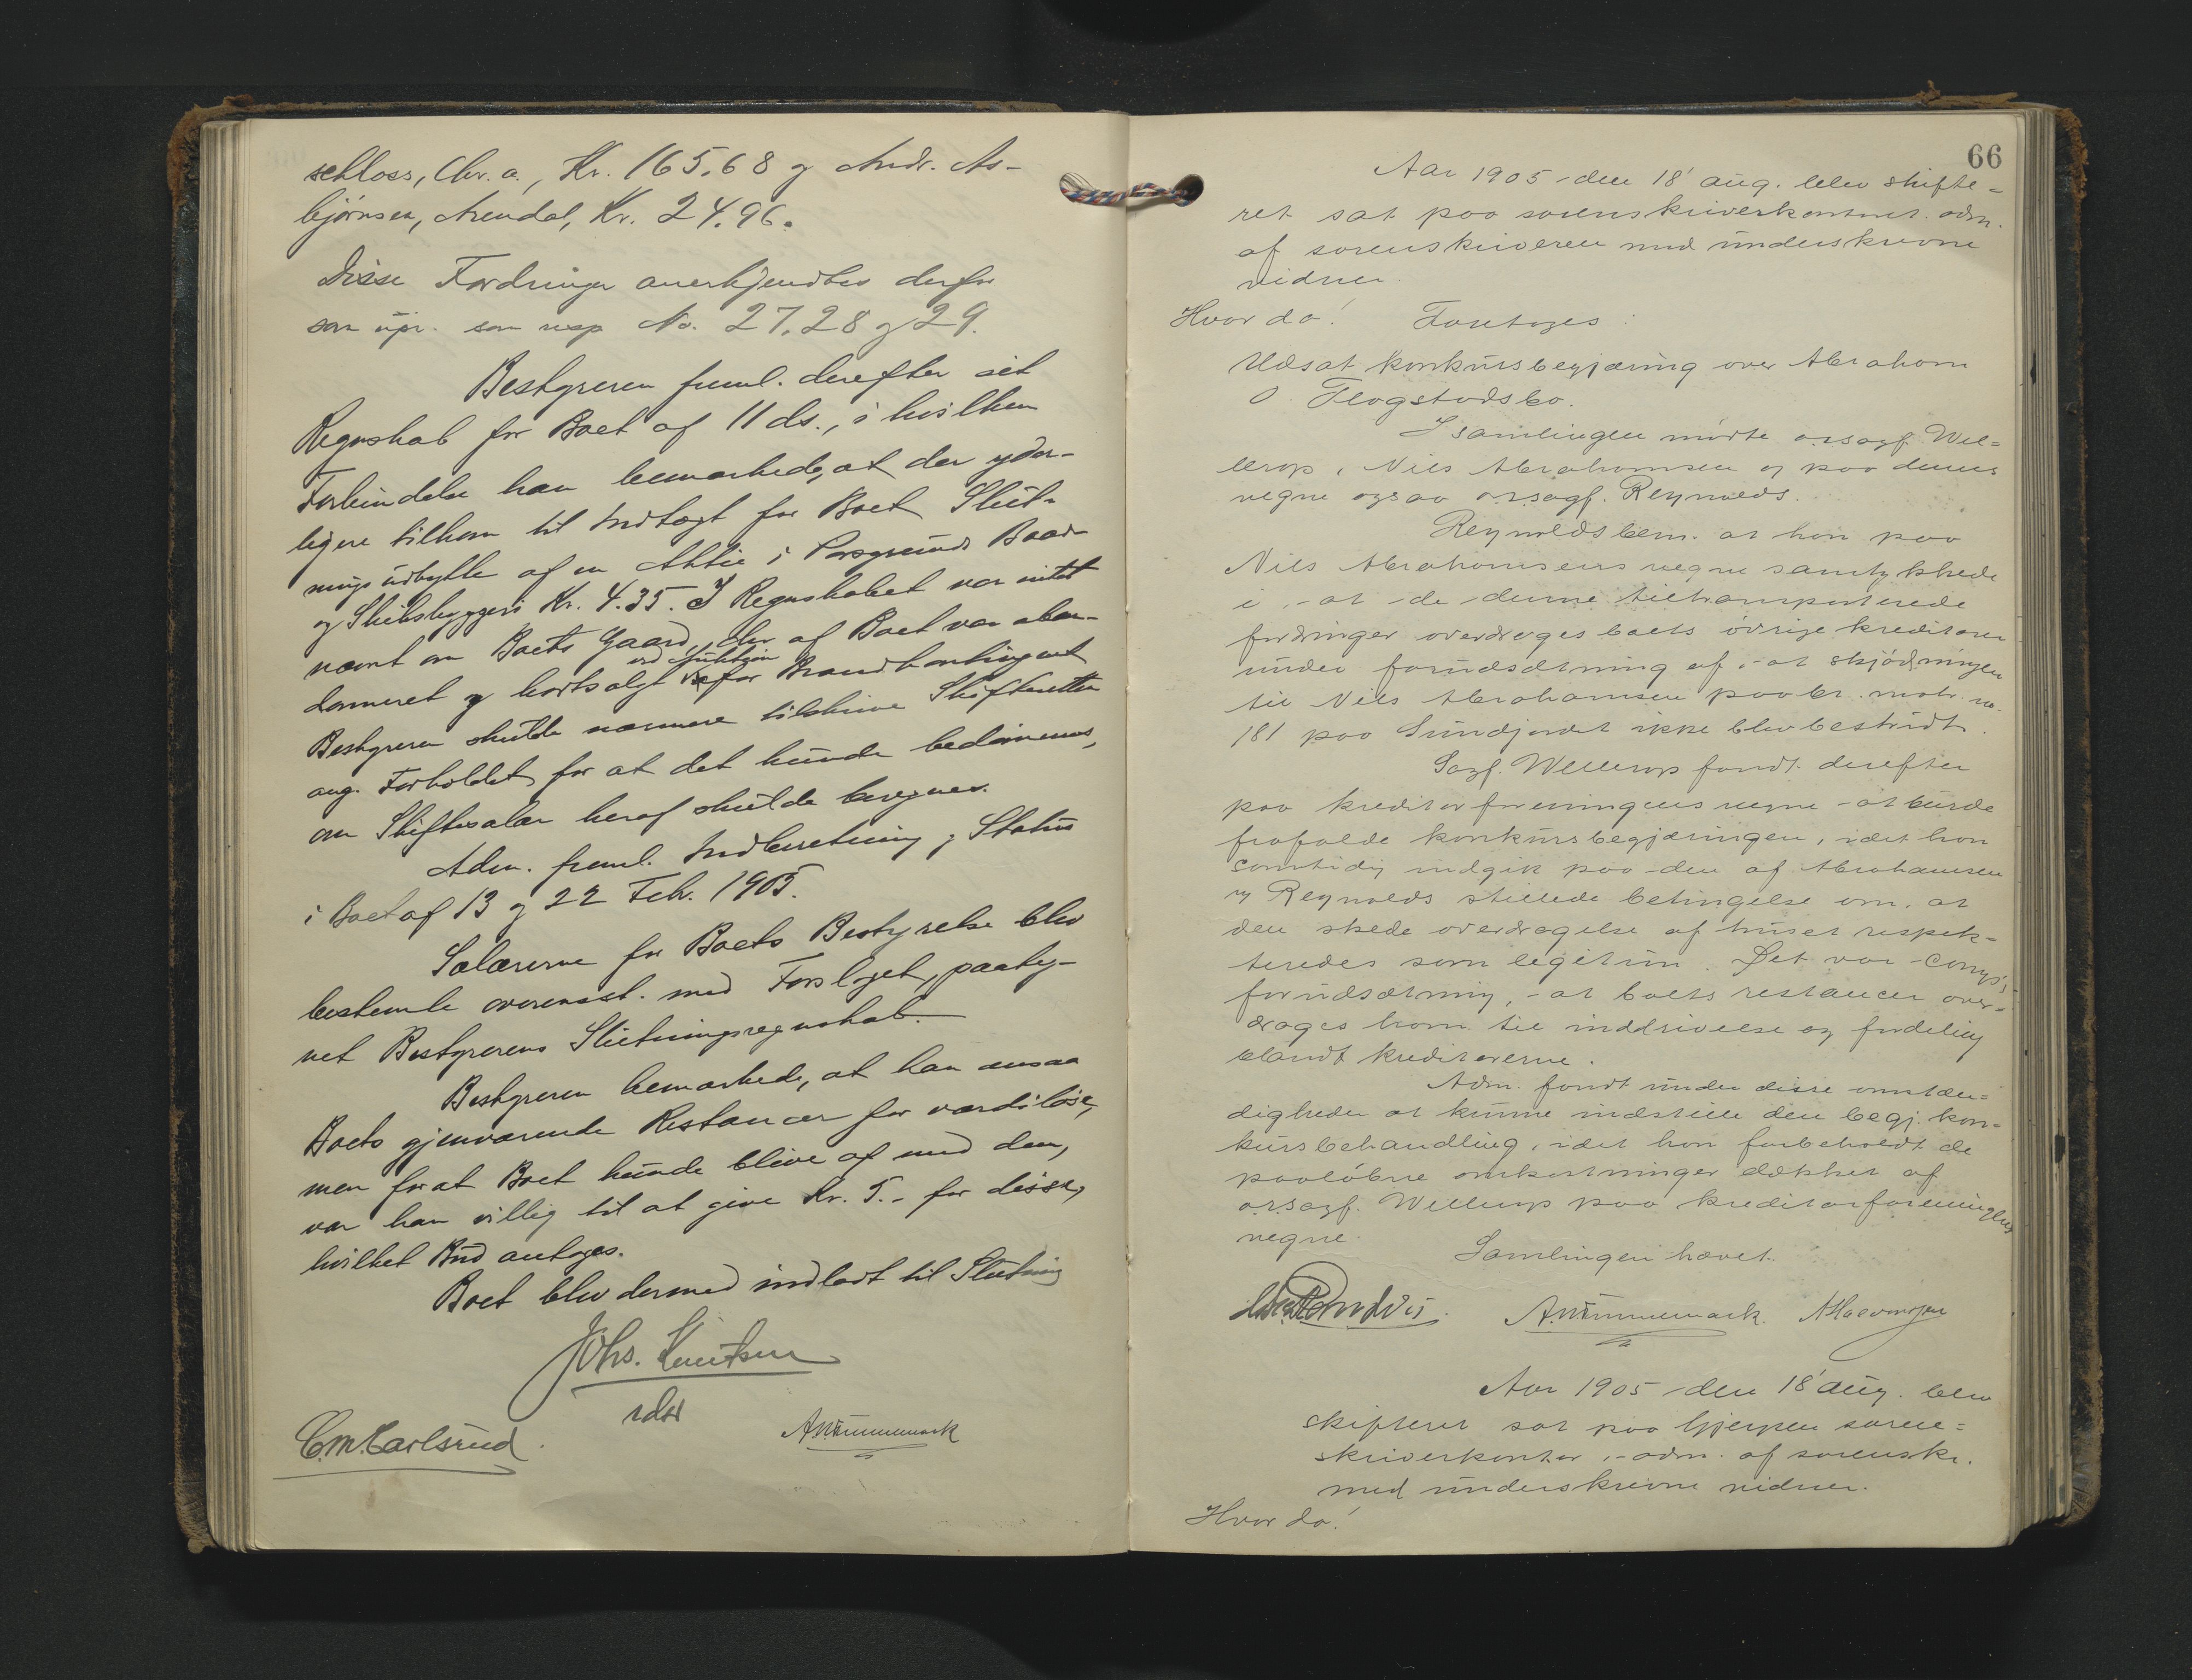 schloss, Chr.a., Kr. 165.68 og Andr. As-
bjørnsen, Arendal, Kr. 24.96.
Disse Fordringer anerkjendtes derfor
som upr. som resp No. 27, 28 og 29.
Bestyreren freml. derefter sit
Regnskab for Boet af 11 ds., i hvilken
Forbindelse han bemærkede, at der yder-
ligere tilkom til Indtægt for Boet Slut-
ningsudbytte af en Aktie i Porsgrunds Baad-
og Skibsbyggeri Kr. 4.35. I Regnskabet var intet
nævnt om Boets Gaard, der af Boet var aban-
donneret og bortsolgt ved Auktion for Brandkontingent
Bestyreren skulde nærmere tilskrive Skifteretten
ang. Forholdet, for at det kunde bedømmes,
om Skiftesalær heraf skulde beregnes.
Adm. freml. Indberetning og Status
i Boet af 13 og 22 Febr. 1905.
Salærerne for Boets Bestyrelse blev
bestemte overensst. med Forslaget, paateg-
net Bestyrerens Slutningsregnskab.
Bestyreren bemærkede, at han ansaa
Boets gjenværende Restancer for værdiløse,
men for at Boet kunde blive af med dem,
var han villig til at give Kr. 5.- for disse,
hvilket Bud antoges.
Boet blev dermed indladt til Slutning
Johs. Knutsen
C.M. Carlsrud. A. Wimmemark
66
Aar 1905 den 18' aug. blev skifte=
ret sat paa sorenskriverkontoret adm.
af sorenskriveren med underskrevne
vidner.
Hvor da! Foretoges:
Udsat konkursbegjæring over Abraham
O. Flogstads bo.
I samlingen mødte o.r.sagf. Wel=
lerop, Niels Abrahamsen og paa dennes
vegne ogsaa o.r.sagf. Reynolds.
Reynolds bem. at han paa
Niels Abrahamsens vegne samtykkede
i, at de denne tiltransporterede
fordringer overdrages boets øvrige kreditorer
under forudsætning af, at skjødningen
til Niels Abrahamsen paa br. matr. no.
181 paa Sundjordet ikke blev bestridt.
Sagf. Wellerop fandt derefter
paa kreditorforeningens vegne at burde
frafalde konkursbegjæringen, idet han
samtidig indgik paa den af Abrahamsen
og Reynolds stillede betingelse om, at
den skede overdragelse af huset respek=
teredes som legitim. Det var
forudsætning, at boets restancer over=
drages ham til inddrivelse og fordeling
blandt kreditorerne.
Adm. fandt under disse omstæn=
digheder at kunne indstille den begj. kon=
kursbehandling, idet han forbeholdt de
paaløbne omkostninger dækket af
o.r.sagf. Wellerop paa kreditorforeningens
vegne.
Samlingen hævet.
A. Wimmemark. A Halvorsen
Aar 1905 den 18' aug. blev
skifteret sat paa Gjerpen soren=
skriverkontor, adm. af sorenskr.
med underskrevne vidner.
Hvor da!